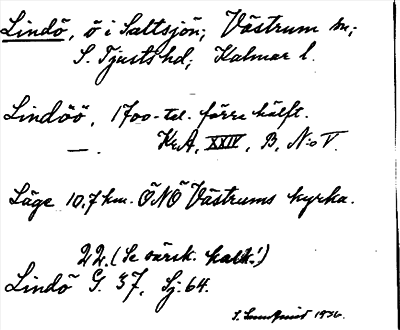 Lindö, ö i Saltsjön; Västrum sn;
S. Tjusts hd; Kalmar l.
Lindöö, 1700-tal. förra hälft.
—. KrA, XXIV, B, N:o V.
Läge 10,7 km. ÖNÖ Västrums kyrka.
22. (Se särsk. kart.!)
Lindö G. 37, Sj. 64.
1936.